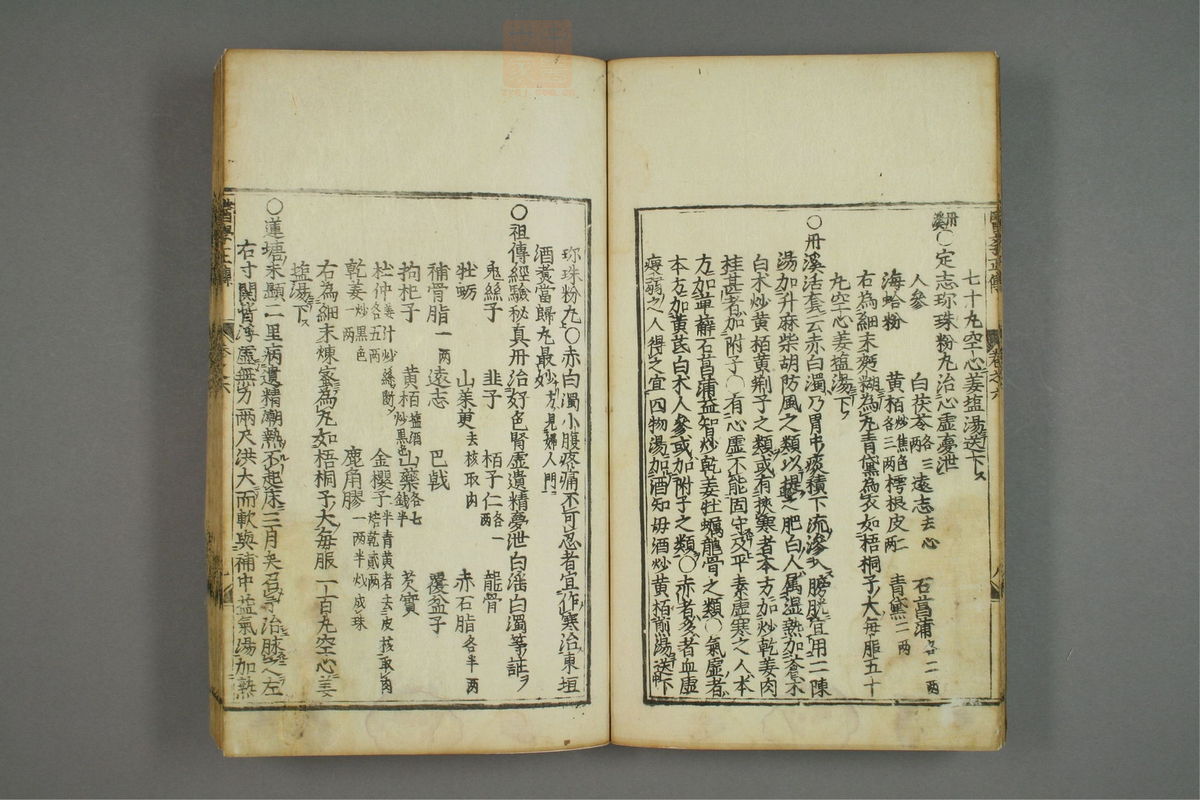 七十丸空心姜塩湯送下
丹溪○定志珎珠粉丸治心虛夢泄
人參 白茯苓各三兩 遠志去心 石菖蒲各二兩
海蛤粉 黄栢炒焦色各三兩 樗根皮二兩 青黛二兩
右為細末麪糊為丸青黛為衣如梧桐子大每服五十
丸空心姜塩湯下
○丹溪活套云赤白濁乃胃中痰積下流滲入膀胱宜用二陳
湯加升麻柴胡防風之類以提之肥白人属湿熱加蒼术
白术炒黄栢黄荊子之類或有挾寒者本方加炒乾姜肉
桂甚者加附子○有心虛不能固守及平素虛寒之人本
方加萆薢石菖蒲益智炒乾姜牡蠣龍骨之類○氣虛者
本方加黄芪白术人參或如附子之類○赤者多者血虛
瘦弱之人得之宜四物湯加酒知毋酒炒黄栢煎湯送下
珎珠粉丸○赤白濁小腹疼痛不可忍者宜作寒治東垣
酒煮當歸丸最妙方見婦人門
○祖傳經驗秘真丹治好色腎虛遺精夢泄白滛白濁等証
菟絲子 韭子 栢子仁各一兩 龍骨
牡蛎 山茱萸去核取肉 赤石脂各半兩
補骨脂一兩 遠志 巴戟 覆盆子
拘杞子 黄栢塩酒炒黒色 山藥各七錢半 芡實
杜仲姜汁炒絲断各五兩 金櫻子半青黄者去皮核取肉焙乾貳兩
乾姜炒黒色一兩 鹿角膠一兩半炒成珠
右為細末煉蜜為丸如梧桐子大每服一百丸空心姜
塩湯下
○蓮塘朱顯二里病遺精潮熱不起床三月矣召予治脉之左
右寸関皆浮虛無力兩尺洪大而軟與補中益氣湯加熟